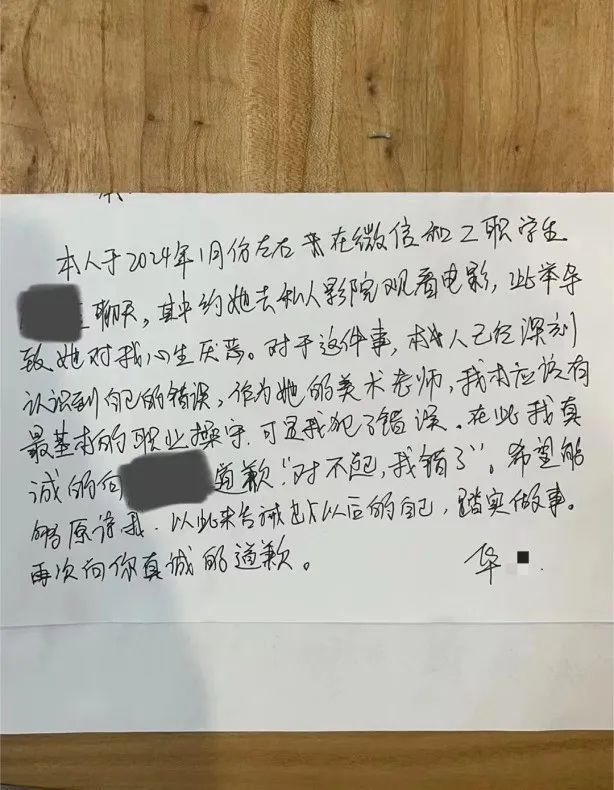 本人于2024年1月份左右来在微信和工职学生
聊天,其中约她去私人影院观看电影,此举导
致她对我心生厌恶。对于这件事,本人已经深刻
认识到自己的错误,作为她的美术老师,我本应该有
最基本的职业操守,可是我犯了错误。在此我真
诚的向 道歉:"对不起,我错了"。希望能
够原谅我,以此来告诫以后的自己,踏实做事。
再次向你真诚的道歉。 华